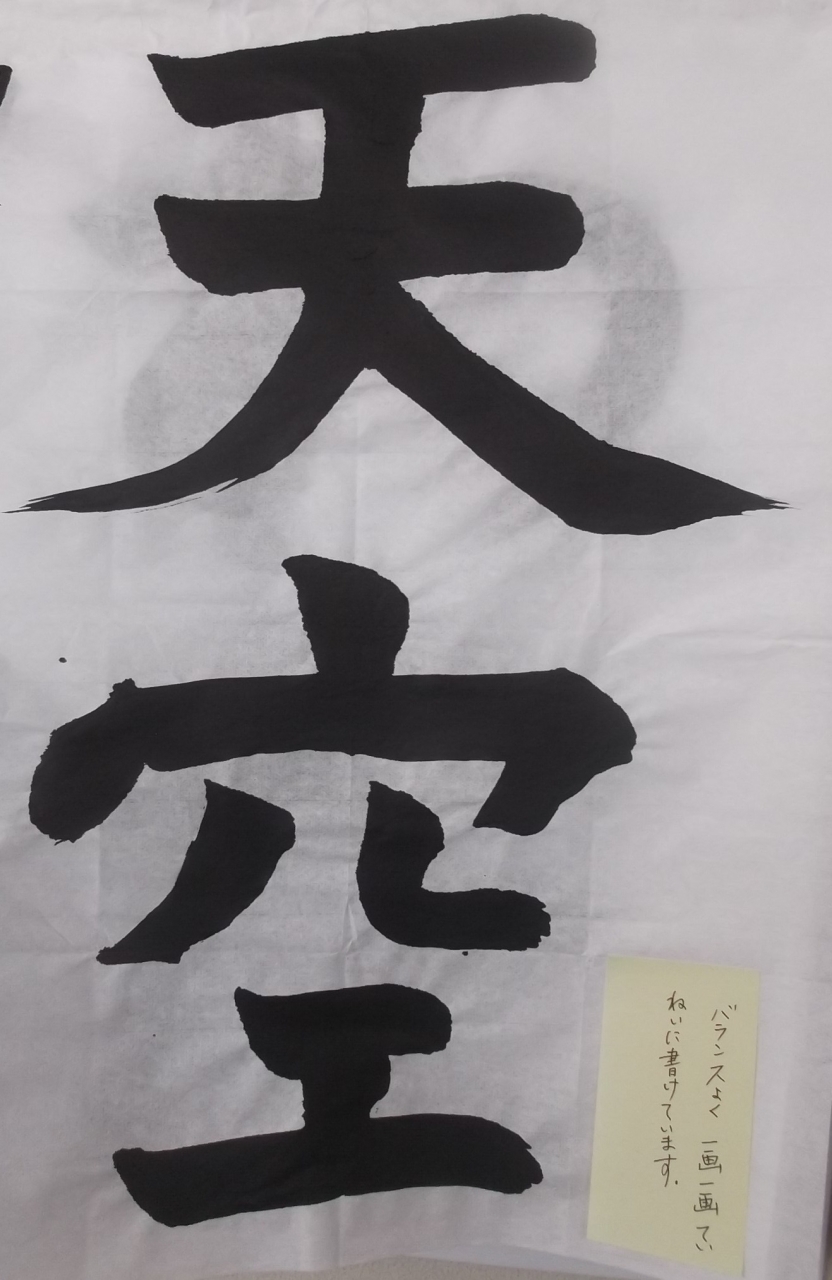 天空
バランスよく 一画一画てい
ねいに書けています.